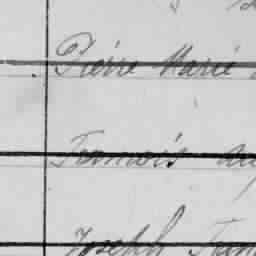 Pierre Marie
François Au
Joseph Fran